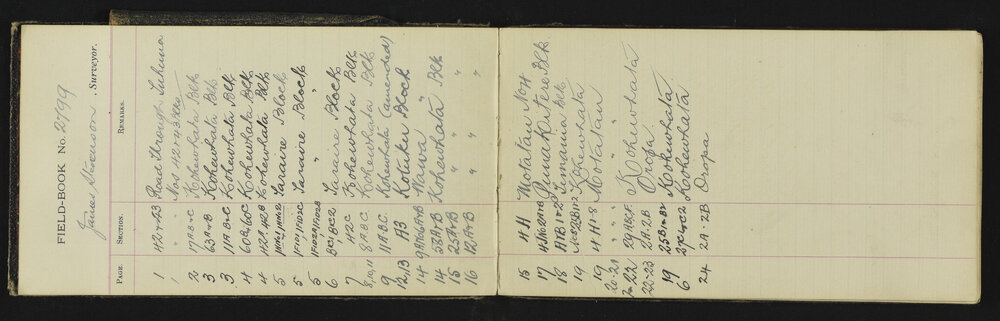 FIELD-BOOK No. 2799
James Stevenson, Surveyor.
PAGE. SECTION. REMARKS.
1 1+2 & A3 Road Through Tuhuna
1 " " Nos 1+2 & 43
2 17A.B & C Kohewhata Blk
3 63A & B Kohewhata Blk
3 11A B & C Kohewhata Blk
4 60B, 60C Kohewhata Blk
4 42A, 42B Kohewhata Blk
5 Taraire Block
5 1F1D1, 1F1D2C Taraire Block
5 1F1D2A, 1F1D2B " "
6 8C1, 8C2 Taraire Block
7 42C Kohewhata Blk
8,10,11 8A.B.C. Kohewhata Blk
9 11A.B.C. Kohewhata (amended)
12,13 A3 Kotuku Block
14 9A 6A & B Nawa "
14 58A & B Kohewhata Blk
15 25A & B " "
16 12A & B " "
15 4H Motatau No 4
17 Blk.
18 A1B 1 & 2 Blk
19 Kohewhata
19 4H 1-8 Motatau
20-21 " " "
22 29A.B.C.F. Kohewhata
22-23 2A-2B Oropa
19 25B1 & B2 Kohewhata
6 27C1 & C2 Kohewhata
24 2A-2B Oropa